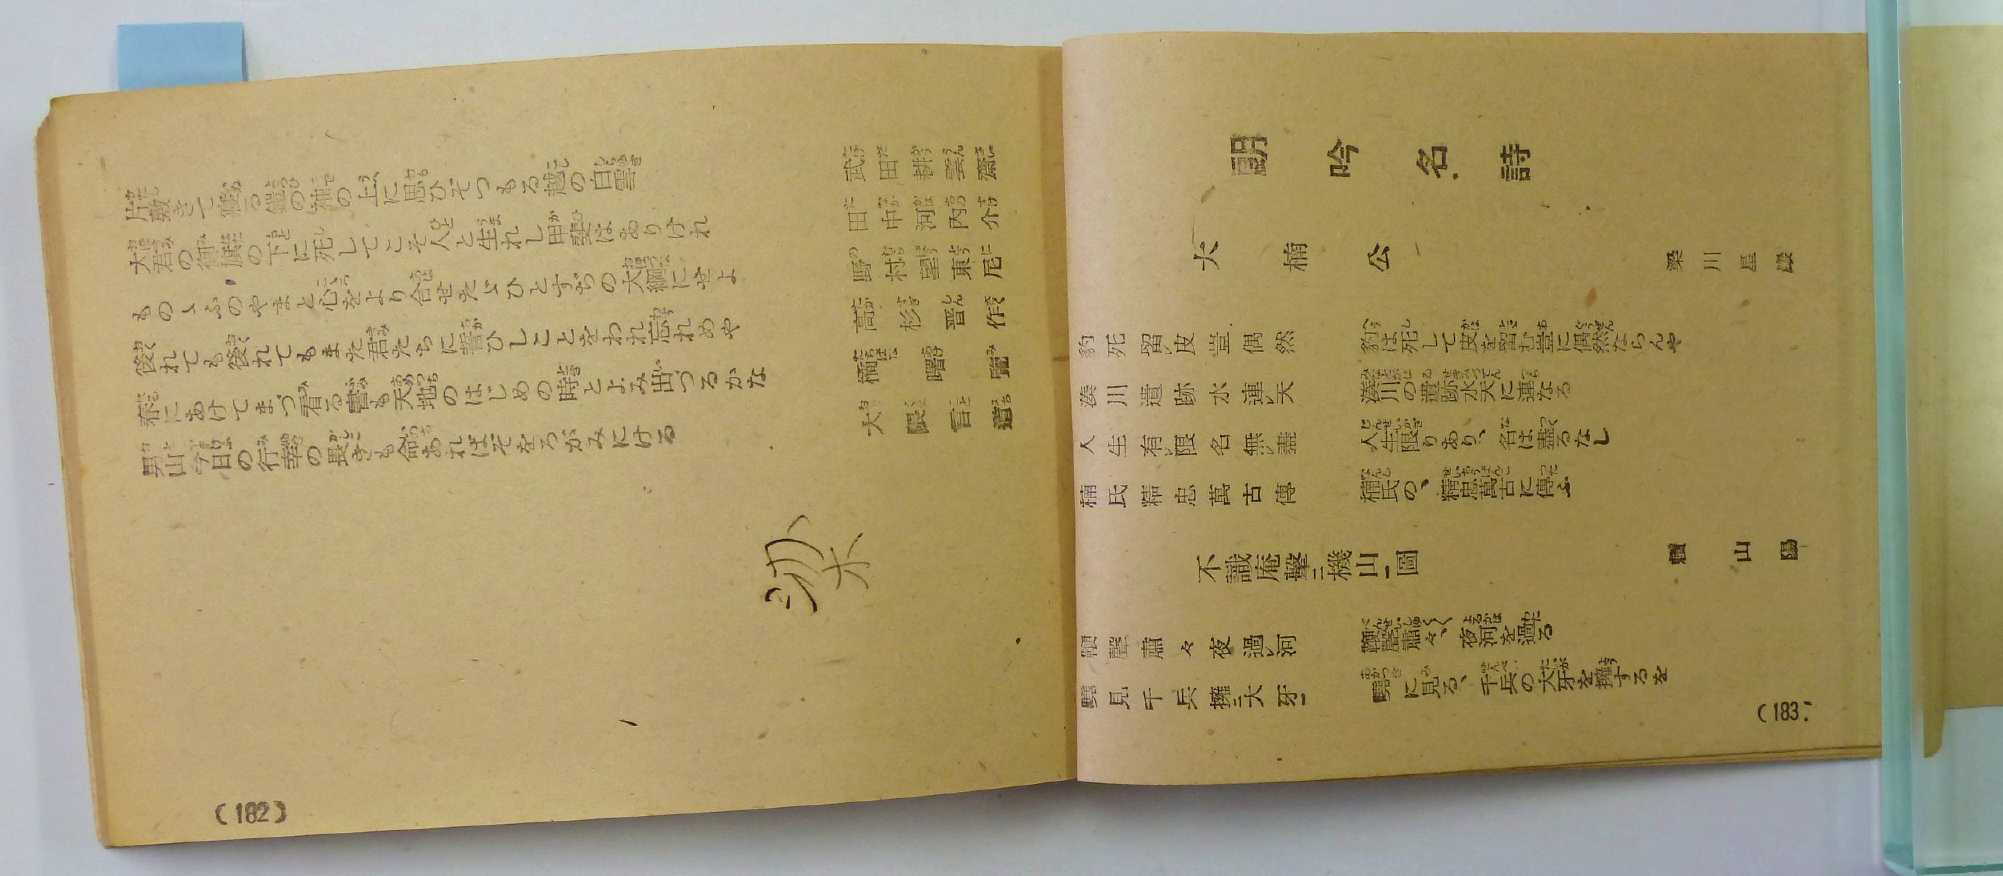 片敷きて寐る鎧の袖の上に思ひぞつもる越の白雪　武田耕雲齋
大君の御旗の下に死してこそ人と生れし甲斐はありけれ　田中河内介
ものゝふのやまと心をより合せたゞひとすぢの大綱にせよ　野村望東尼
後れても後れてもまた君たちに誓ひしことをわれ忘れめや　高杉晋作
春にあけてまづ看る書も天地のはじめの時とよみ出づるかな　橘曙覽
男山今日の行幸の畏きも命あればぞをろがみにける　大隈言道
梁
(182)
朗吟名詩
大楠公　梁川星巖
豹死留レ皮豈偶然　豹は死して皮を留む豈に偶然ならんや
湊川遺跡水連レ天　湊川の遺跡水天に連なる
人生有レ限名無レ盡　人生限りあり、名は盡くるなし
楠氏精忠萬古傳　楠氏の、精忠萬古に傳ふ
不識庵擊二機山一圖　賴山陽
鞭聲肅々夜過レ河　鞭聲肅々、夜河を過る
曉見千兵擁二大牙一　曉に見る、千兵の大牙を擁するを
(183)